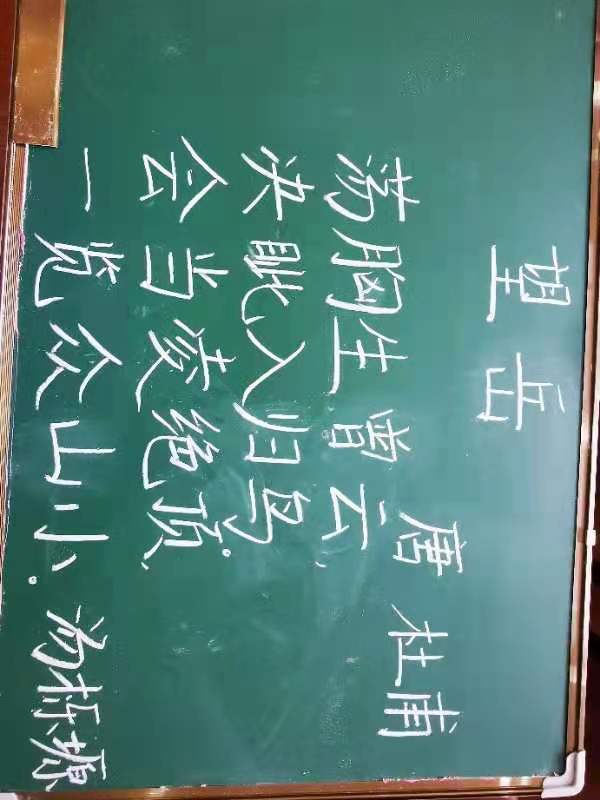 望岳
唐 杜甫
荡胸生曾云,
决眦入归鸟.
会当凌绝顶,
一览众山小.